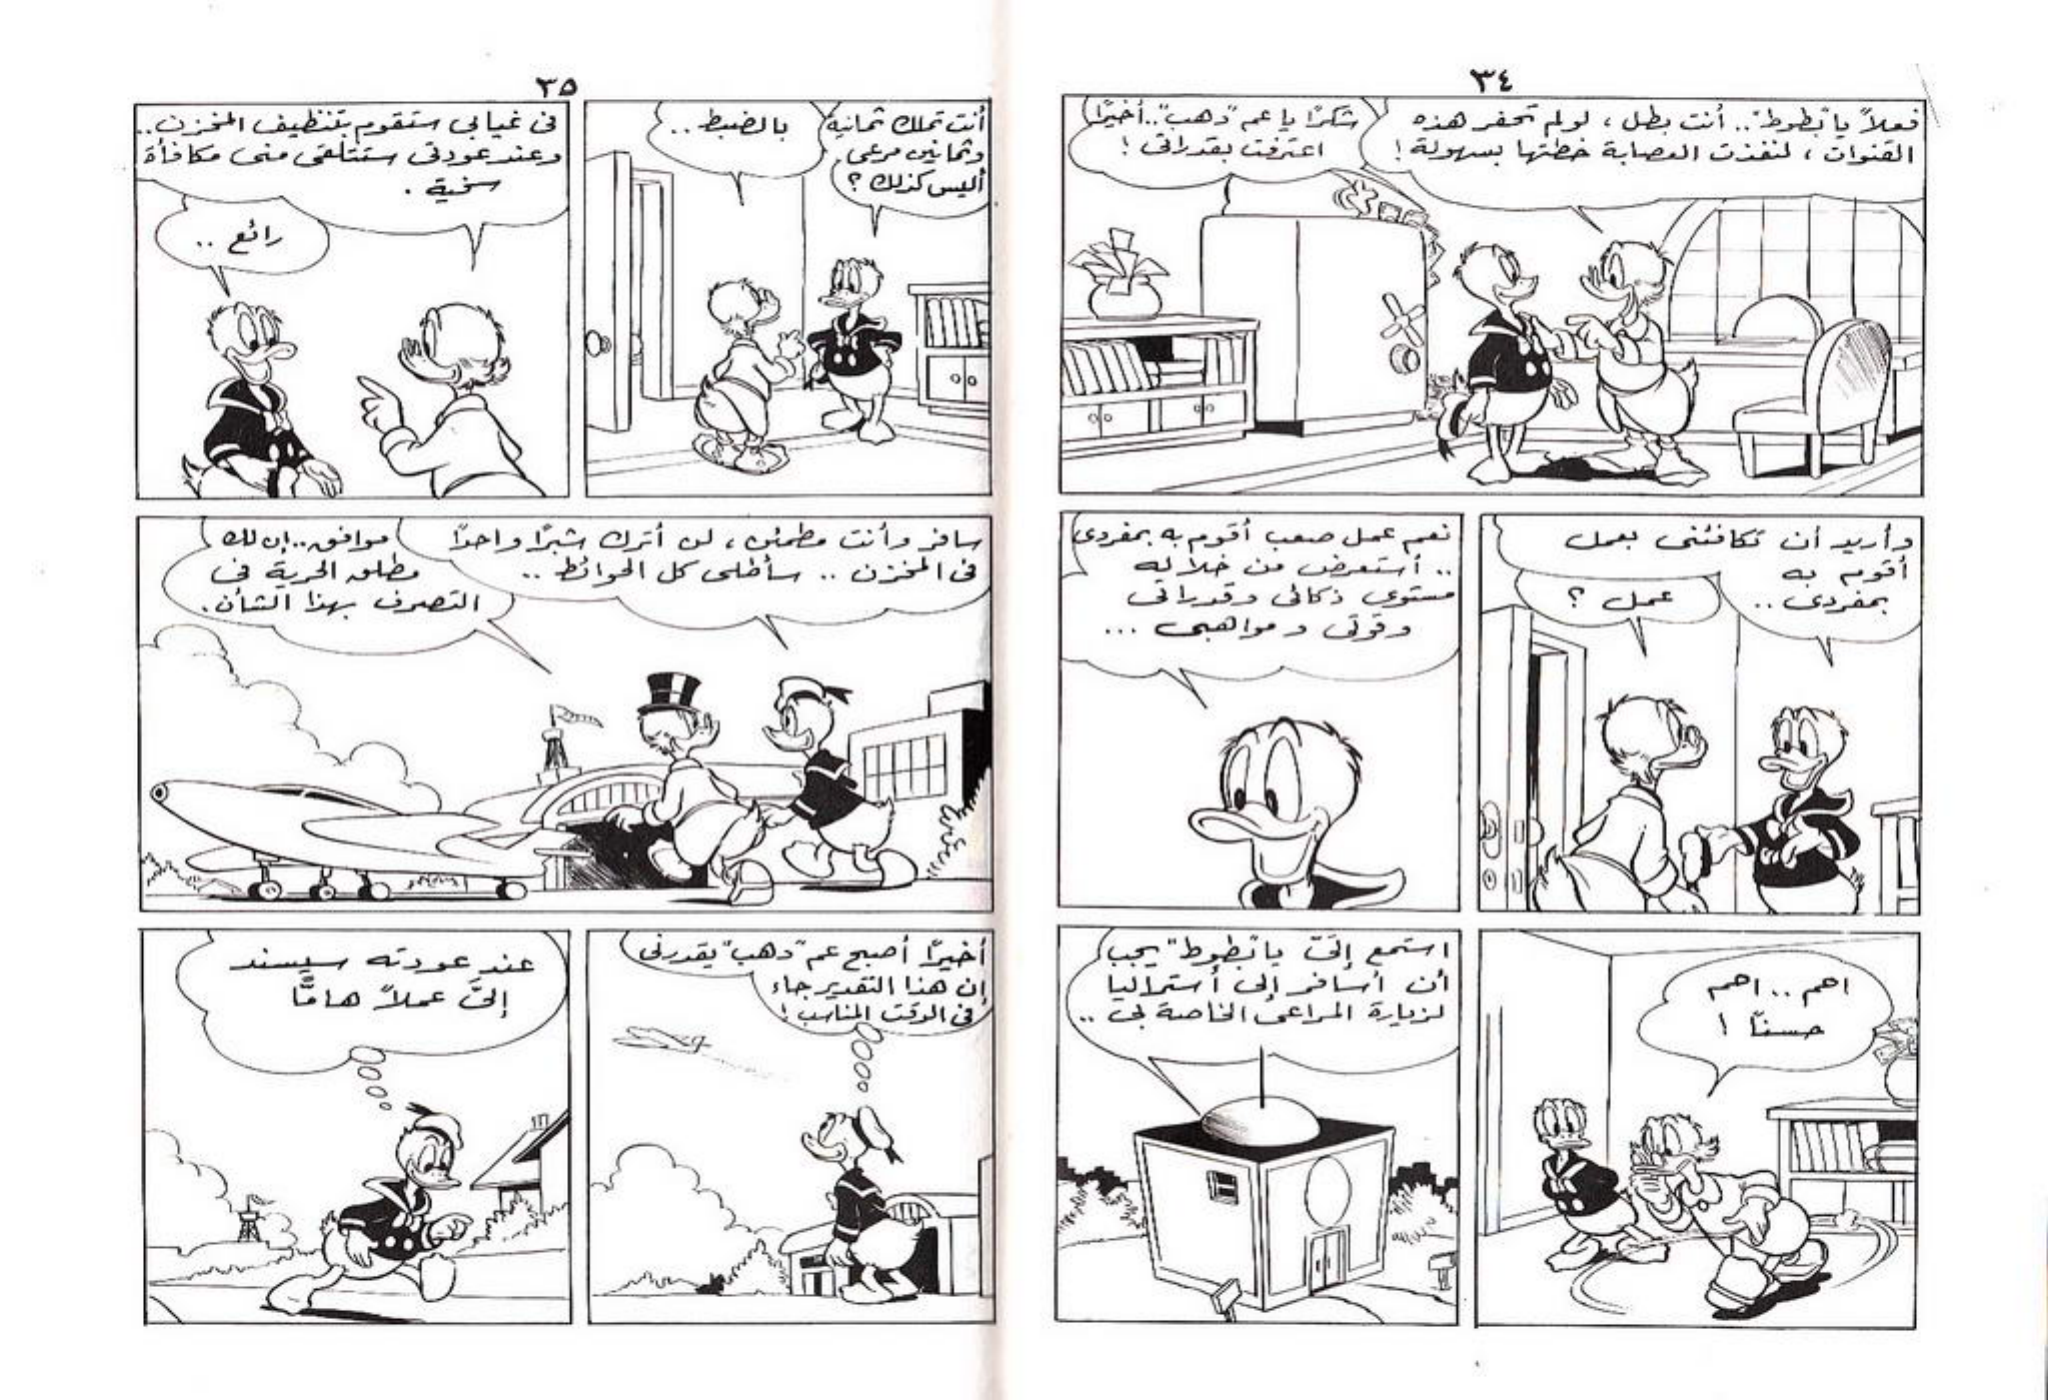 ٣٤
فعلاً يا "بطوط".. أنت بطل ، لولم تحفر هذه
القنوات ، لنفذت العصابة خطتها بسهولة !
شكرًا يا عم "دهب".. أخيرًا
اعترفت بقدراتى !
وأريد أن تكافئنى بعمل
أقوم به
بمفردى ..
عمل ؟
نعم عمل صعب أقوم به بمفردى
.. أستعرض من خلاله
مستوى ذكائى وقدراتى
وقوتى ومواهبى ...
اهم .. اهم
حسنًا !
استمع إلىَّ يا "بطوط" يجب
أن أسافر إلى أستراليا
لزيارة المراعى الخاصة بى ..
٣٥
أنت تملك ثمانية
وثمانين مرعى
أليس كذلك ؟
بالضبط ..
فى غيابى ستقوم بتنظيف المخزن ..
وعند عودتى ستتلقى منى مكافأة
سخية .
رائع ..
سافر وأنت مطمئن ، لن أترك شبرًا واحدًا
فى المخزن .. سأطلى كل الحوائط ..
موافق .. إن لك
مطلق الحرية فى
التصرف بهذا الشأن .
أخيرًا أصبح عم "دهب" يقدرنى
إن هذا التقدير جاء
فى الوقت المناسب !
عند عودته سيسند
إلىَّ عملاً هامًّا